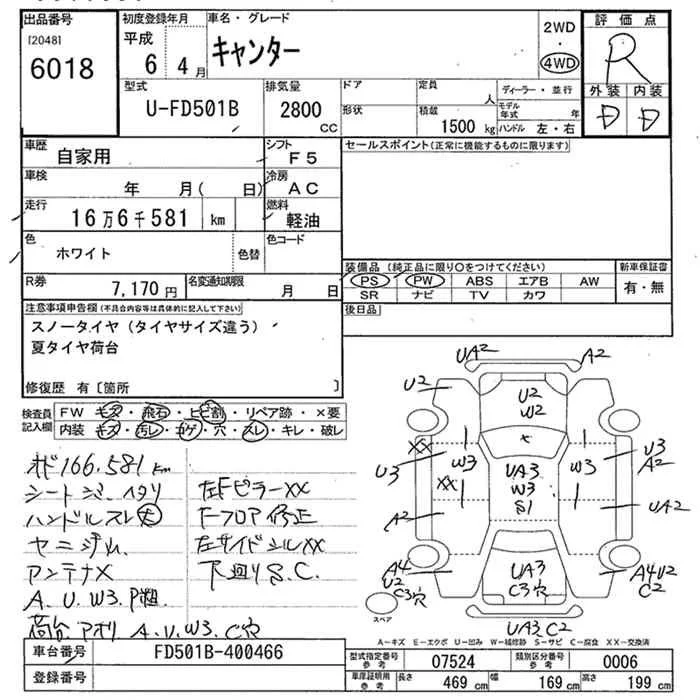 出品番号
[2048]
6018
初度登録年月
平成
6 4月
車名・グレード
キャンター
2WD
・
4WD
評価点
R
外装 内装
D D
型式
U-FD501B
排気量
2800
CC
ドア
形状
定員
人
積載
1500 kg
ディーラー・並行
モデル年式 年
ハンドル 左・右
車歴
自家用
シフト
F5
セールスポイント(正常に機能するものに限ります)
車検
年 月( 日)
冷房
AC
走行
16万6千581 km
燃料
軽油
色
ホワイト
色替
色コード
R券
7,170円
名変通知期限
月 日
装備品(純正品に限り○をつけてください)
PS PW ABS エアB AW
SR ナビ TV カワ
新車保証書
有・無
後日品
注意事項申告欄(不具合内容等は具体的に記入して下さい)
スノータイヤ(タイヤサイズ違う)
夏タイヤ荷台
修復歴 有〔箇所 〕
検査員記入欄
FW キズ・飛石・ヒビ割・リペア跡・×要
内装 キズ・汚レ・コゲ・穴・スレ・キレ・破レ
オド166,581km
シートジミ・ヘタリ
ハンドルスレ大
ヤニジム
アンテナX
A.U.W3.P粗
荷台アオリ A.U.W3.C穴
左FピラーXX
Fフロア修正
左サイドシルXX
下廻りS.C.
UA2
A2
U2
U2
W2
XX
U3
W3
XX
A2
UA3
W3
S1
W3
U3
A2
UA2
A4
U2
C3穴
UA3
C3穴
A4U2
C2
UA3.C2
スペア
A－キズ E－エクボ U－凹み W－補修跡 S－サビ C－腐食 XX－交換済
車台番号
FD501B-400466
登録番号
型式指定番号
参考
07524
類別区分番号
参考
0006
車庫証明用
参考
長さ 469 cm
幅 169 cm
高さ 199 cm